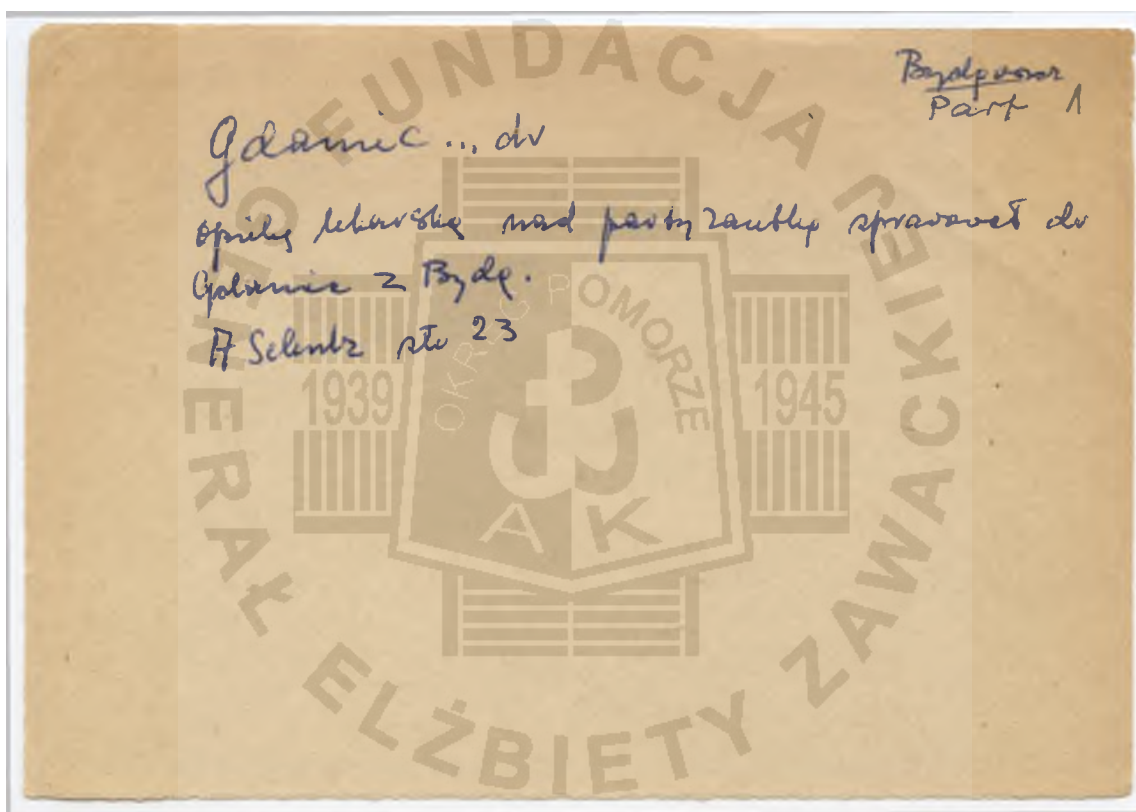 Bydgoszcz
Part 1
Gdaniec ... dr
opiekę lekarską nad partyzantką sprawował dr
Gdaniec z Bydg.
A Selentz str 23
FUNDACJA
GENERAŁ ELŻBIETY ZAWACKIEJ
OKRĘG POMORZE
1939
1945
AK